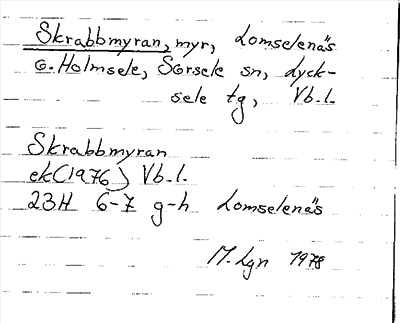 Skrabbmyran, myr, Lomselenäs
o. Holmsele, Sorsele sn, Lyck-
sele tg, Vb.l.
Skrabbmyran
ek(1976) Vb.l.
23H 6-7 g-h Lomselenäs
M. Lgn 1978